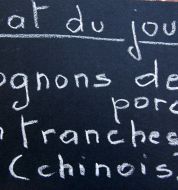 at du jou
ognons de
porc
n tranches
(chinois)